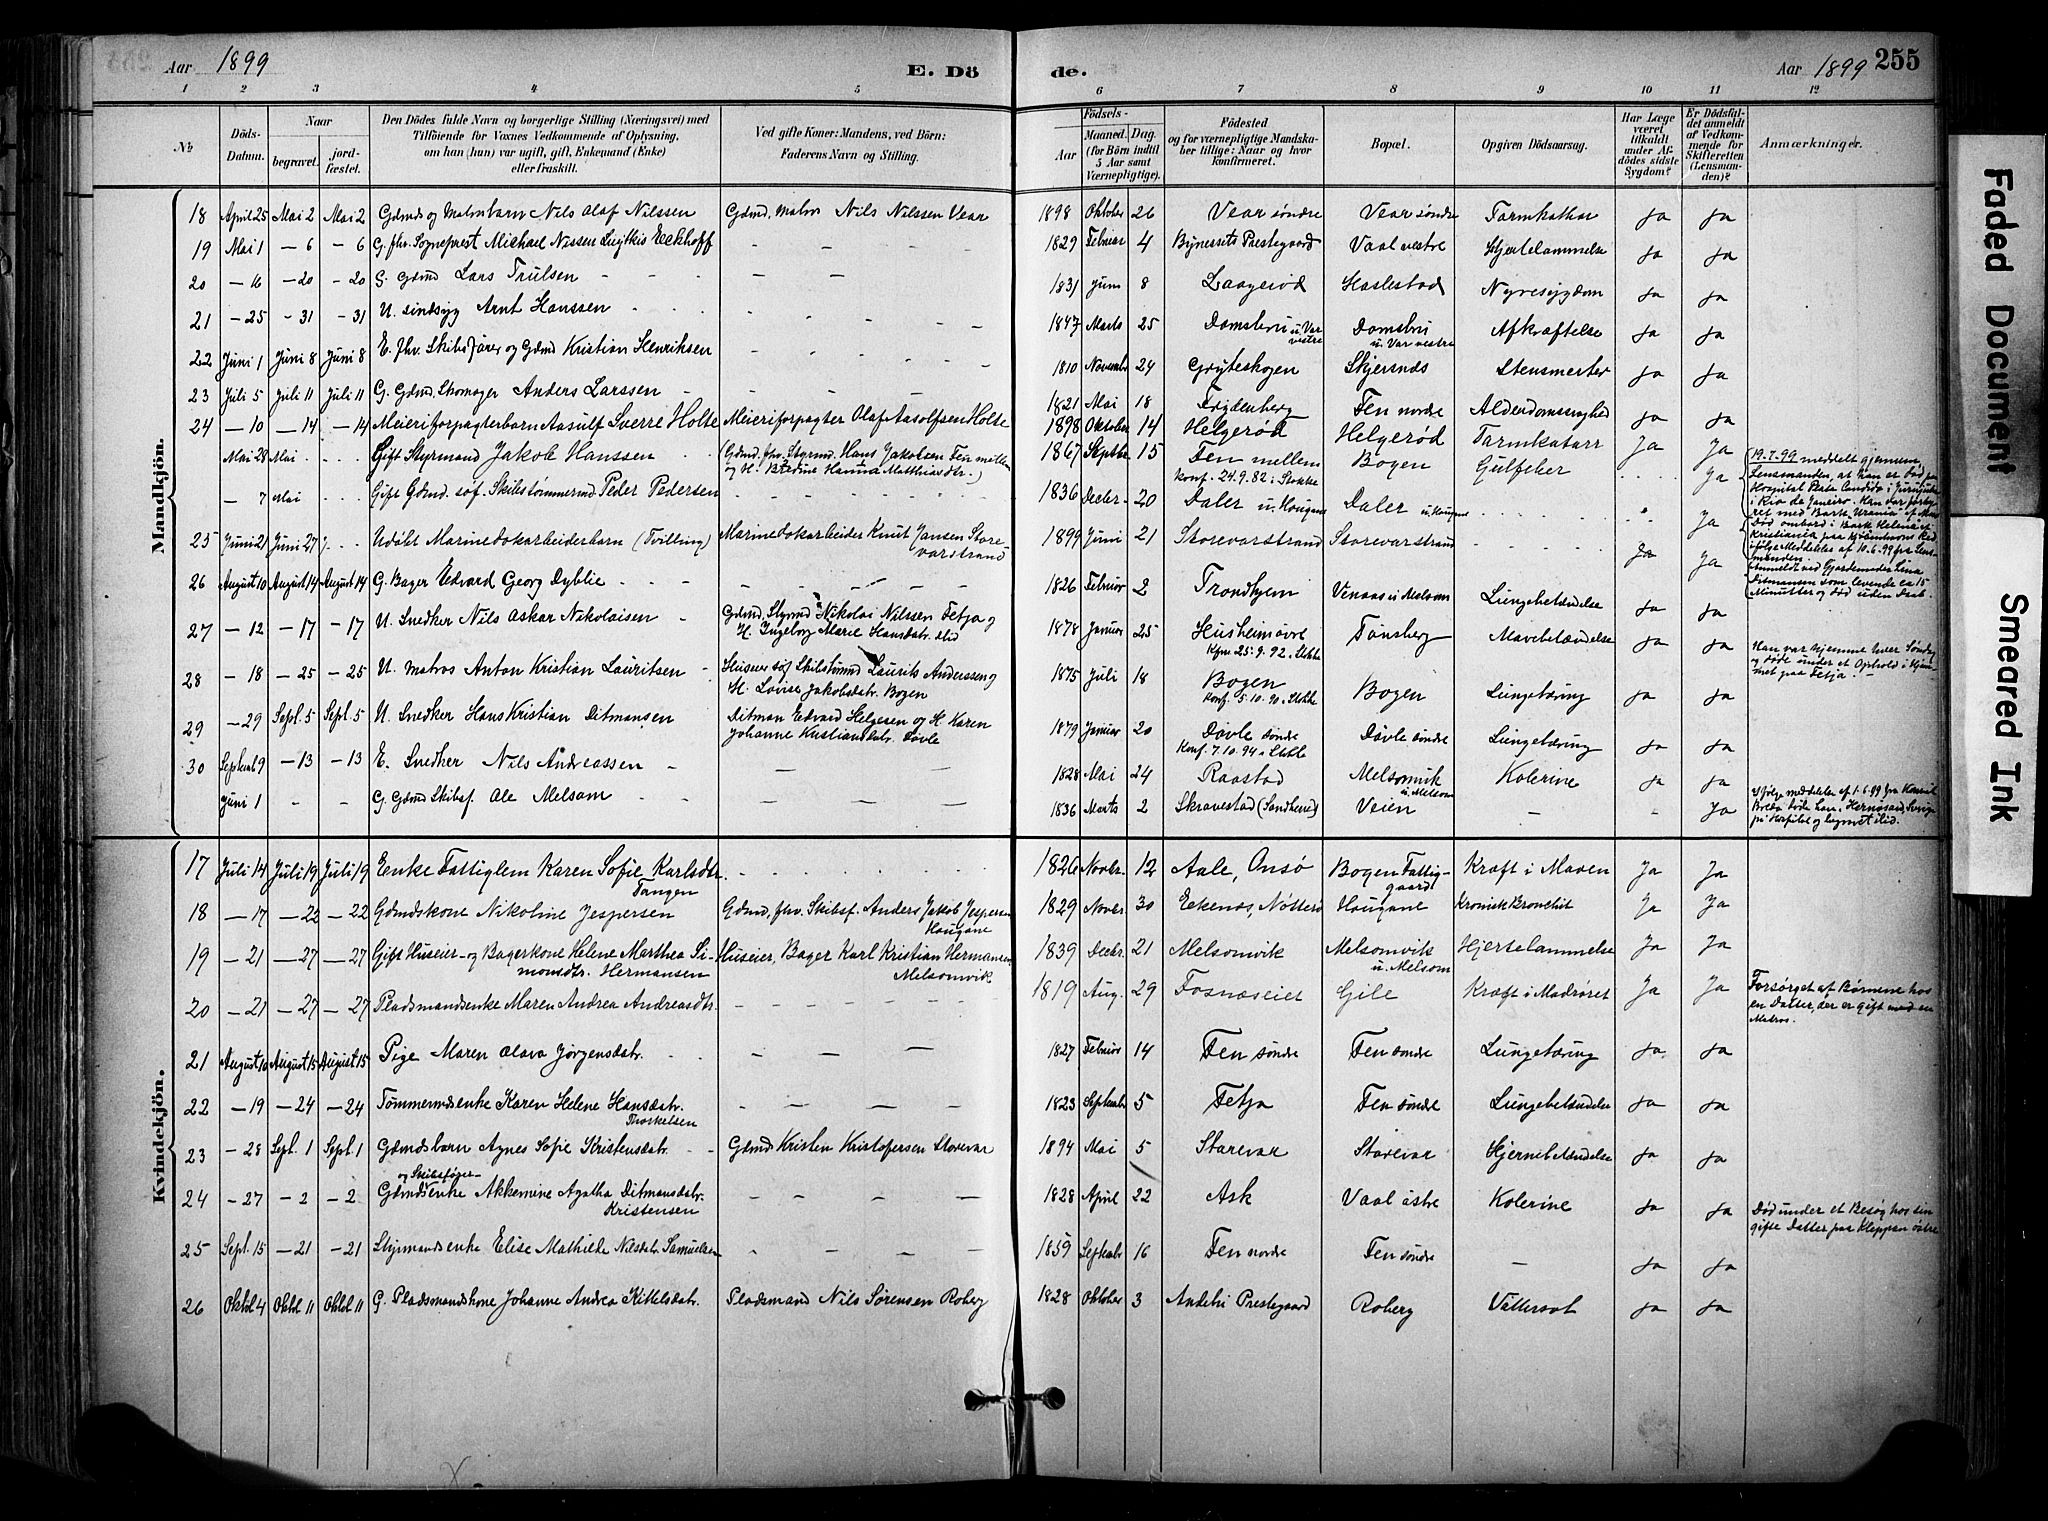 Aar 1899 E. Döde. Aar 1899 255
1 2 3 4 5 6 7 8 9 10 11 12
№ Döds-Datum. Naar begravet. jordfæstet. Den Dødes fulde Navn og borgerlige Stilling (Næringsvei) med Tilföiende för Voxnes Vedkommende af Oplysning, om han (hun) var ugift, gift, Enkemand (Enke) eller fraskilt. Ved gifte Koner: Mandens, ved Börn: Faderens Navn og Stilling. Födsels- Aar Maaned. Dag. (for Börn indtil 5 Aar samt Værnepligtige). Födested og for værnepligtige Mandskaber tillige: Naar og hvor konfirmeret. Bopæl. Opgiven Dödsaarsag. Har Læge været tilkaldt under Afdödes sidste Sygdom? Er Dödsfaldet anmeldt af Vedkommende for Skifteretten (Lensmanden)? Anmærkninger.
Mandkjön.
18 April 25 Mai 2 Mai 2 Gdmds og Matrosbarn Nils Olaf Nilssen Gdmd. Matros Nils Nilssen Vear 1898 Oktober 26 Vear søndre Vear søndre Tarmkathar Ja Ja
19 Mai 1 – 6 – 6 G. fhv. Sogneprest Michael Nissen Eckhoff – – – 1829 Februar 4 Bynessets Prestegaard Vaal vestre Hjertelammelse Ja Ja
20 – 16 – 20 – 20 G. Gdmd Lars Trulsen – – – 1831 Juni 8 Laagerød Haslestad Nyresygdom Ja Ja
21 – 25 – 31 – 31 U. sindsyg Arnt Hanssen 1847 Marts 25 u. Var vestre u. Var vestre Afkræftelse Ja Ja
22 Juni 1 Juni 8 Juni 8 E. fhv. Skibsfører og Gdmd Kristian Henriksen 1810 Novembr 24 Gryteskogen Skjersnds Stensmerter Ja Ja
23 Juli 5 Juli 11 Juli 11 G. Gdmd Skomager Anders Larssen 1821 Mai 18 Frydenberg Fen nordre Alderdomssvaghed Ja Ja
24 – 10 – 14 – 14 Meieriforpagterbarn Aasulf Sverre Holte Meieriforpagter Olaf Aasolfsen Holte 1898 Oktober 14 Helgerød Helgerød Tarmkatarr Ja Ja
Mai 28 Mai Gift Styrmand Jakob Hanssen (Gdmd. fhv. Styrmd. Hans Jakobsen Fen mellem og H. Berdine Hanna Matthiasdtr.) 1867 Septbr. 15 Fen mellem Konf. 24.9.82 i Stokke Bogen Gulfeber Ja 19.7.99 meddelt gjennem Lensmanden, at han er død paa Hospital i Rio de Janeiro. Han var med Bark "Urania" af
– 7 Mai Gift Gdmd. søf. Skibstømmermd Peder Pedersen 1836 Decbr. 20 Daler u. Hougane Daler u. Hougane Ja Død ombord i Bark Helene af Kristiania paa Kjøbenhavns Red ifølge Meddelelse af 10.6.99 fra Lensmanden.
25 Juni 21 Juni 27 J. Udøbt Marinedokarbeiderbarn (Tvilling) Marinedokarbeider Knut Jansen Storevarstrand 1899 Juni 21 Storevarstrand Storevarstrand Ja Ja Anmeldt ved Gjordemoder Lina Ditmansen som levende ca 15 Minutter og død uden Daab.
26 August 10 August 14 August 14 G. Bager Edvard Georg Dyblie – – – 1826 Februar 2 Trondhjem Venaas u. Melsom Lungebetændelse Ja Ja
27 – 12 – 17 – 17 U. Snedker Nils Oskar Nikolaisen Gdmd. Styrmd Nikolai Nilssen Fetja og H. Ingeborg Marie Hansdatr. ibid 1878 Januar 25 Husheim øvre Kfm. 25.9.92 i Stokke Tønsberg Mavebetændelse Ja Ja Han var hjemme over Søndag og døde under et Ophold i Hjemmet paa Fetja.
28 – 18 – 25 – 25 U. Matros Anton Kristian Lauritsen Huseier søf. Skibstømmd Laurits Anderssen og H. Lovise Jakobsdtr. Bogen 1875 Juli 18 Bogen Konf. 5.10.90 i Stokke Bogen Lungetæring Ja Ja
29 – 29 Sept. 5 Sept. 5 U. Snedker Hans Kristian Ditmansen Ditman Edvard Helgesen og H. Karen Johanne Kristiansdtr. Døvle 1879 Januar 20 Døvle søndre Konf. 7.10.94 i Stokke Døvle søndre Lungetæring Ja Ja
30 Septembr 9 – 13 – 13 E. Snedker Nils Andreassen – – – 1828 Mai 24 Raastad Melsomvik u. Melsom Kolerine Ja Ja
Juni 1 – – G. Gdmd Skibsf. Ole Melsom – – – 1836 Marts 2 Skravestad (Sandherred) Veien – – Ja Ifølge meddelelse af 1.6.99 fra døde han i Hernøsand, Sverige paa Hospital og begravet ibid.
Kvindekjön.
17 Juli 14 Juli 19 Juli 19 Enke Fattiglem Karen Sofie Karlsdtr. Tangen 1826 Novbr. 12 Aale, Onsø Bogen Fattiggaard Kræft i Maven Ja Ja
18 – 17 – 22 – 22 Gdmdskone Nikoline Jespersen Gdmd. fhv. Skibsf. Anders Jakob Jespersen Hougane 1829 Novbr. 30 Ekenes, Nøtterø Hougane Kronisk Bronchit Ja Ja
19 – 21 – 27 – 27 Gift Huseier- og Bagerkone Helene Marthea Simonsdtr. Hermansen Huseier, Bager Karl Kristian Hermansen, Melsomvik 1839 Decbr. 21 Melsomvik Melsomvik u. Melsom Hjertelammelse Ja Ja
20 – 21 – 27 – 27 Pladsmandsenke Maren Andrea Andreasdtr. 1819 Aug. 29 Fosnæseiet Gile Kræft i Madrøret Ja Ja Forsørget af Børnene hos en Datter, der er gift med en Matros.
21 August 10 August 15 August 15 Pige Maren Olava Jørgensdatr. – – – 1827 Februar 14 Fen søndre Fen søndre Lungetæring Ja Ja
22 – 19 – 24 – 24 Tømmermdsenke Karen Helene Hansdatr. Thorkelsen – – – 1823 Septembr 5 Fetja Fen søndre Lungebetændelse Ja Ja
23 – 28 Sept. 1 Sept. 1 Gdmdsbarn Agnes Sofie Kristensdatr. Gdmd Kristen Kristofersen Storevar 1894 Mai 5 Storevar Storevar Hjernebetændelse Ja Ja
24 – 27 – 2 – 2 Gdmds og Skibsfører- enke Akkemine Agatha Ditmansdatr. Kristensen – – – 1828 April 22 Ask Vaal østre Kolerine Ja Ja Død under et Besøg hos sin gifte Datter paa Kleppan østre
25 Sept. 15 – 21 – 21 Styrmandsenke Elise Mathilde Nilsdatr. Samuelsen – – – 1859 Septembr 16 Fen nordre Fen søndre – Ja Ja
26 Oktob. 4 Oktob. 11 Oktob. 11 G. Pladsmandskone Johanne Andrea Kittelsdatr. Pladsmand Nils Sørensen Roberg 1828 Oktober 3 Andebu Prestegaard Roberg Vattersot Ja Ja
Faded Document
Smeared Ink